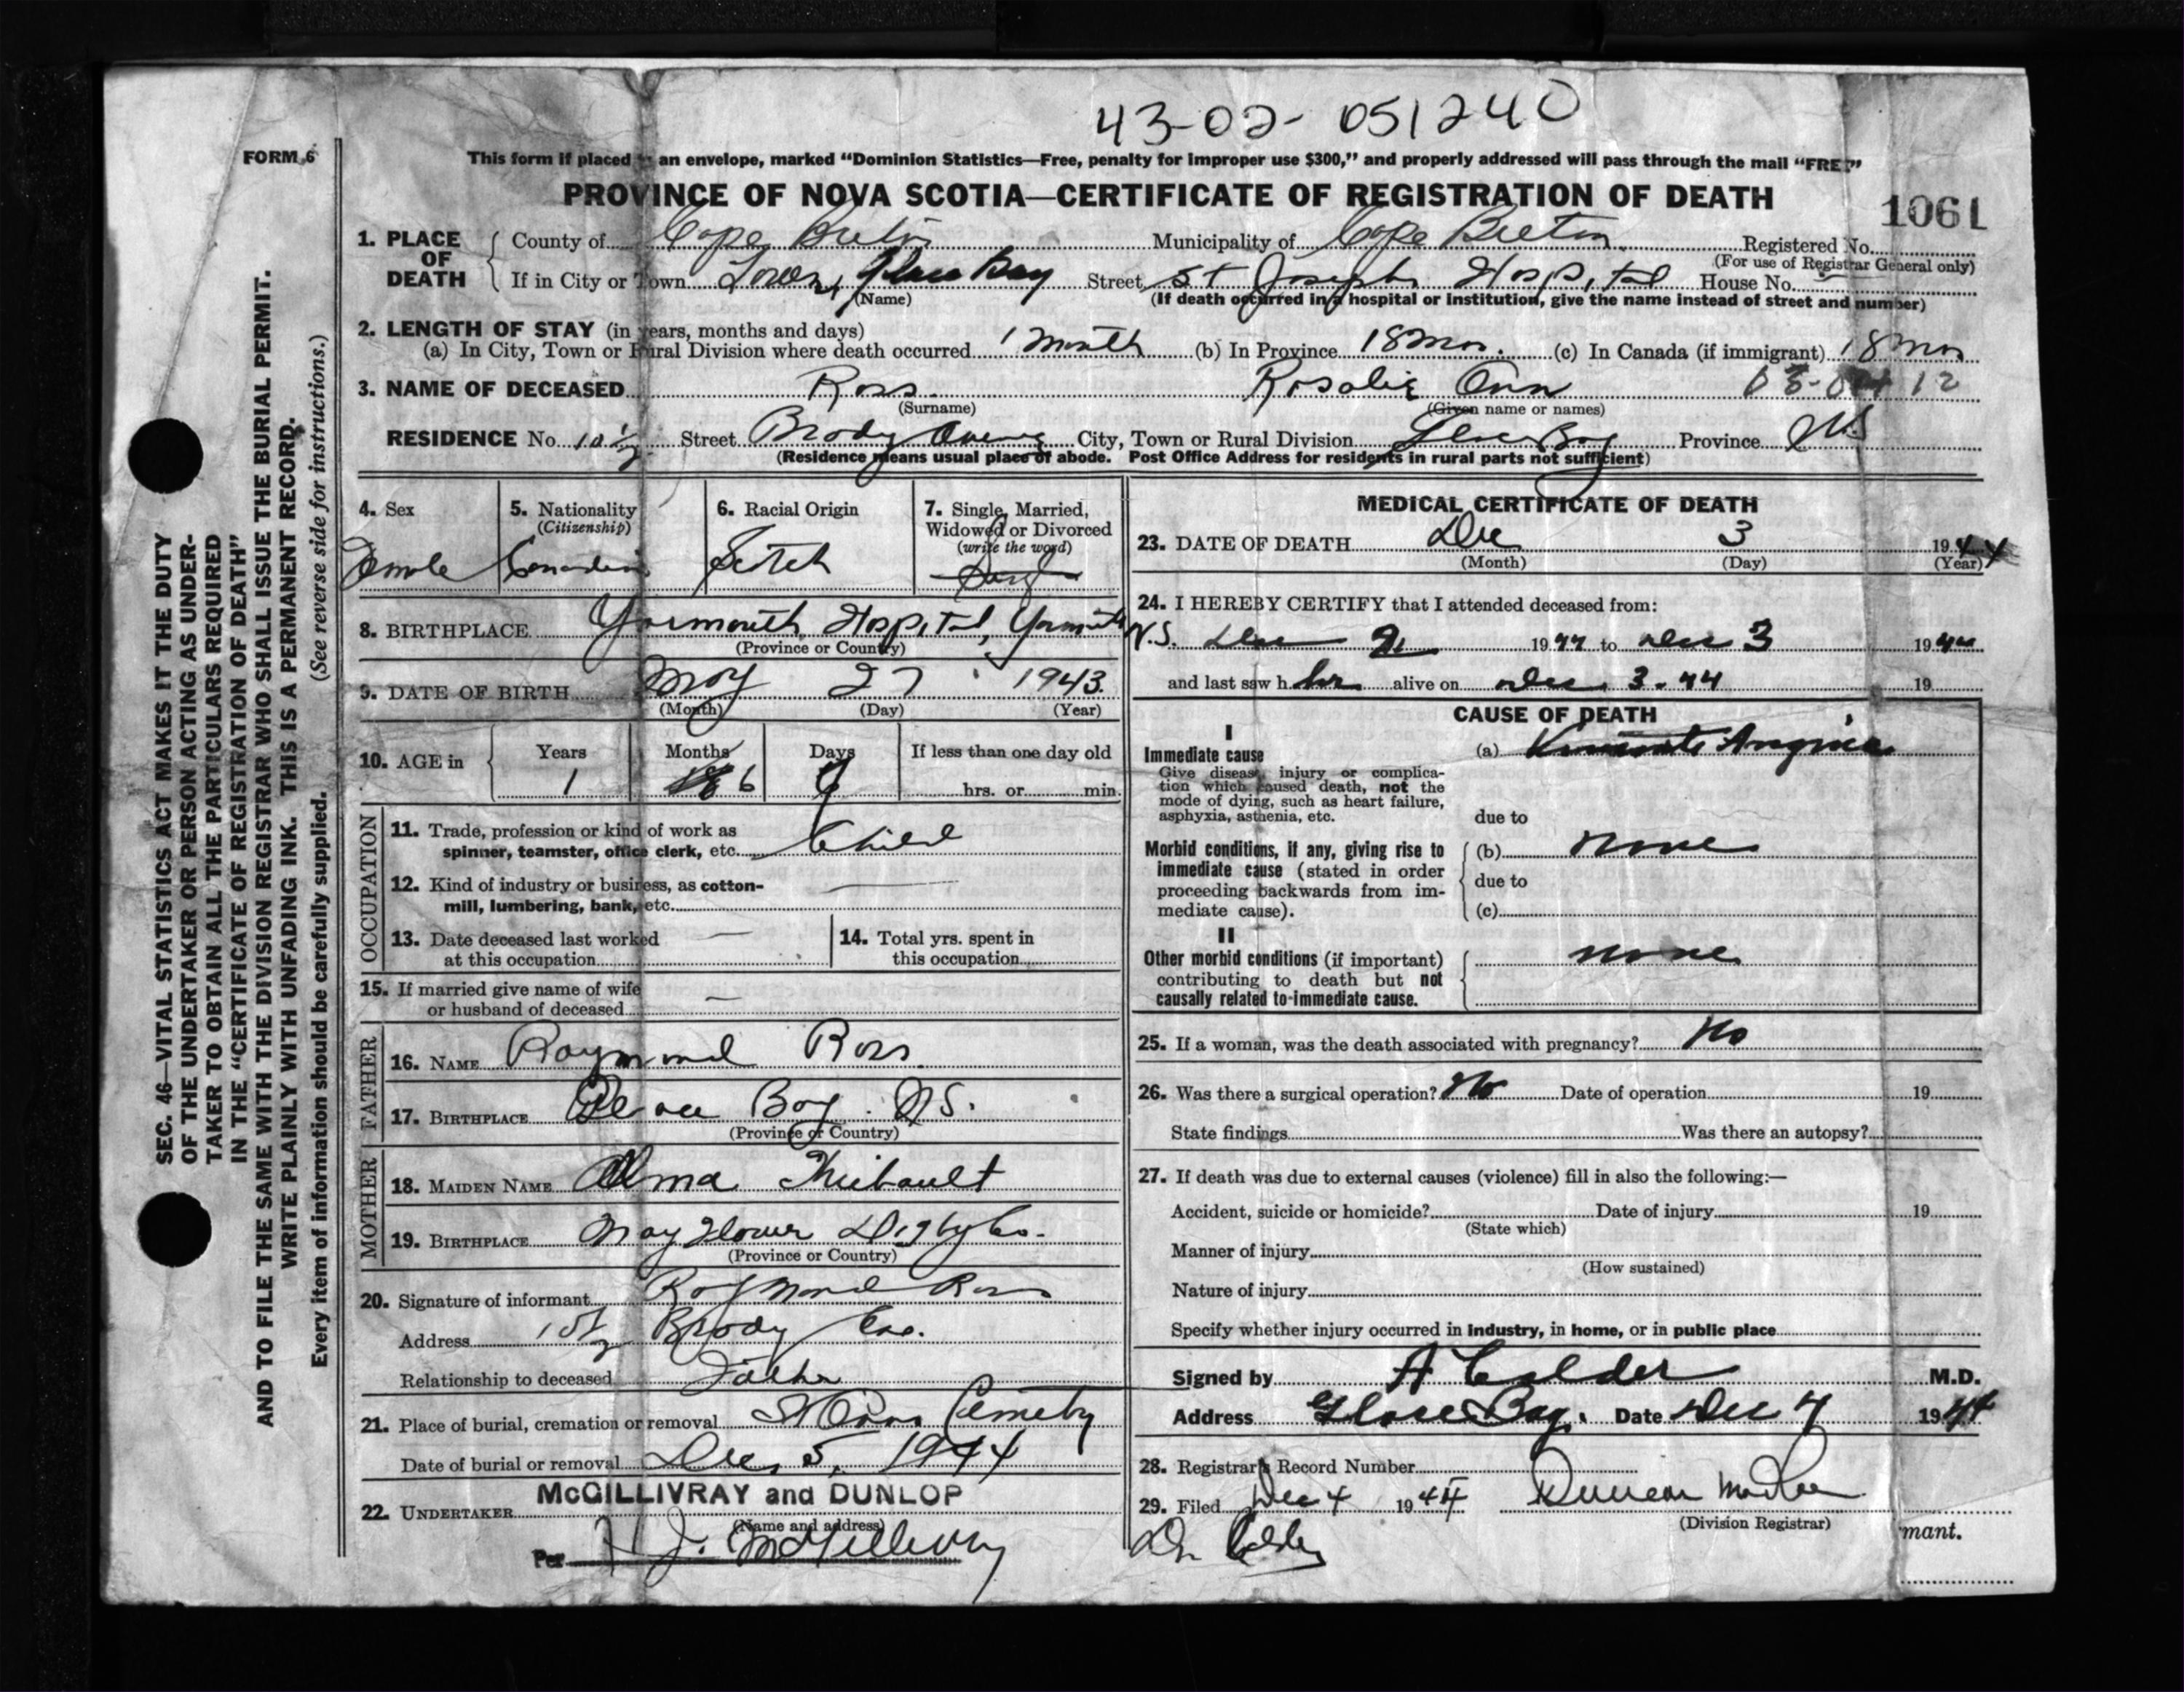 43-02-051240
FORM 6
This form if placed in an envelope, marked “Dominion Statistics—Free, penalty for improper use $300,” and properly addressed will pass through the mail “FREE”
PROVINCE OF NOVA SCOTIA—CERTIFICATE OF REGISTRATION OF DEATH
1061
1. PLACE OF DEATH County of Cape Breton Municipality of Cape Breton Registered No.
(For use of Registrar General only)
If in City or Town Town, Glace Bay Street St Joseph Hospital House No.
(Name) (If death occurred in a hospital or institution, give the name instead of street and number)
2. LENGTH OF STAY (in years, months and days)
(a) In City, Town or Rural Division where death occurred 1 month (b) In Province 18 mos. (c) In Canada (if immigrant) 18 mos
3. NAME OF DECEASED Ross Rosalie Ann
(Surname) (Given name or names)
RESIDENCE No. 10½ Street Brody Avenue City, Town or Rural Division Glace Bay Province NS
(Residence means usual place of abode. Post Office Address for residents in rural parts not sufficient)
4. Sex 5. Nationality (Citizenship) 6. Racial Origin 7. Single, Married, Widowed or Divorced (write the word)
Female Canadian Scotch Single
8. BIRTHPLACE Yarmouth Hospital, Yarmouth N.S.
(Province or Country)
9. DATE OF BIRTH May 27 1943
(Month) (Day) (Year)
10. AGE in Years Months Days If less than one day old
1 6 hrs. or min.
OCCUPATION
11. Trade, profession or kind of work as spinner, teamster, office clerk, etc. Child
12. Kind of industry or business, as cotton-mill, lumbering, bank, etc. —
13. Date deceased last worked at this occupation —
14. Total yrs. spent in this occupation
15. If married give name of wife or husband of deceased —
FATHER
16. NAME Raymond Ross
17. BIRTHPLACE Glace Bay. NS.
(Province or Country)
MOTHER
18. MAIDEN NAME Alma Thibault
19. BIRTHPLACE Mayflower Digby Co.
(Province or Country)
20. Signature of informant Raymond Ross
Address 10½ Brody Ave.
Relationship to deceased Father
21. Place of burial, cremation or removal St Anns Cemetery
Date of burial or removal Dec 5, 1944
22. UNDERTAKER McGILLIVRAY and DUNLOP
(Name and address)
Per H J. McGillivray
MEDICAL CERTIFICATE OF DEATH
23. DATE OF DEATH Dec 3 1944
(Month) (Day) (Year)
24. I HEREBY CERTIFY that I attended deceased from:
Dec 2 1944 to Dec 3 1944
and last saw h er alive on Dec 3-44 19
CAUSE OF DEATH
I
Immediate cause (a) Angina
Give disease, injury or complication which caused death, not the mode of dying, such as heart failure, asphyxia, asthenia, etc.
due to
Morbid conditions, if any, giving rise to immediate cause (stated in order proceeding backwards from immediate cause).
(b) none
due to
(c)
II
Other morbid conditions (if important) contributing to death but not causally related to immediate cause.
none
25. If a woman, was the death associated with pregnancy? No
26. Was there a surgical operation? No Date of operation 19
State findings Was there an autopsy?
27. If death was due to external causes (violence) fill in also the following:—
Accident, suicide or homicide? Date of injury 19
(State which)
Manner of injury
(How sustained)
Nature of injury
Specify whether injury occurred in industry, in home, or in public place
Signed by A Calder M.D.
Address Glace Bay. Date Dec 4 1944
28. Registrar's Record Number
29. Filed Dec 4 1944 Duncan
(Division Registrar)
Dr Calder
mant.
SEC. 46—VITAL STATISTICS ACT MAKES IT THE DUTY
OF THE UNDERTAKER OR PERSON ACTING AS UNDER-
TAKER TO OBTAIN ALL THE PARTICULARS REQUIRED
IN THE “CERTIFICATE OF REGISTRATION OF DEATH”
AND TO FILE THE SAME WITH THE DIVISION REGISTRAR WHO SHALL ISSUE THE BURIAL PERMIT.
WRITE PLAINLY WITH UNFADING INK. THIS IS A PERMANENT RECORD.
Every item of information should be carefully supplied. (See reverse side for instructions.)